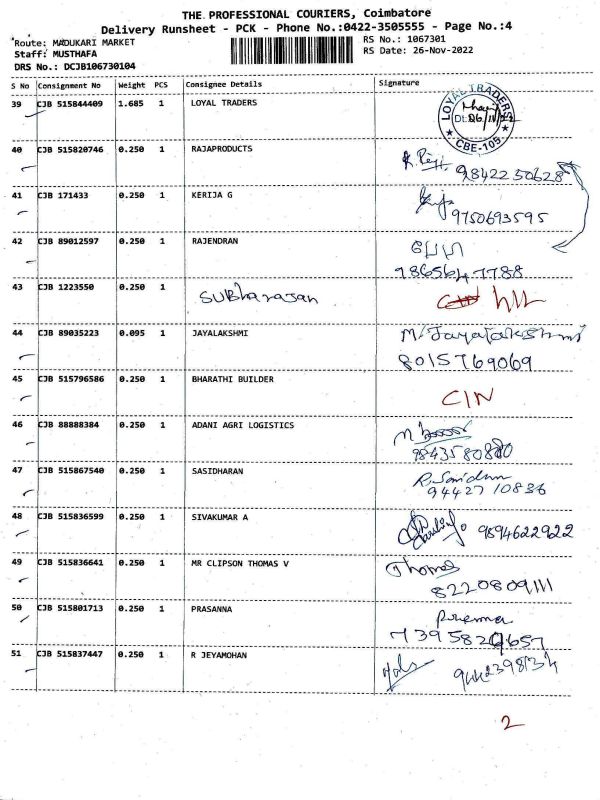 THE PROFESSIONAL COURIERS, Coimbatore
Delivery Runsheet - PCK - Phone No.:0422-3505555 - Page No.:4
Route: MADUKARI MARKET
RS No.: 1067301
Staff: MUSTHAFA
RS Date: 26-Nov-2022
DRS No.: DCJB106730104
S No Consignment No Weight PCS Consignee Details Signature
39 CJB 515844409 1.685 1 LOYAL TRADERS
LOYAL TRADERS
CBE-105
40 CJB 515820746 0.250 1 RAJAPRODUCTS
9842250628
41 CJB 171433 0.250 1 KERIJA G
9750693595
42 CJB 89012597 0.250 1 RAJENDRAN
9865647788
43 CJB 1223550 0.250 1 Subharasan
44 CJB 89035223 0.095 1 JAYALAKSHMI M. Jayalakshmi
8015769069
45 CJB 515796586 0.250 1 BHARATHI BUILDER
CIN
46 CJB 88888384 0.250 1 ADANI AGRI LOGISTICS
47 CJB 515867540 0.250 1 SASIDHARAN
94427 10836
48 CJB 515836599 0.250 1 SIVAKUMAR A 9894622922
49 CJB 515836641 0.250 1 MR CLIPSON THOMAS V Thomas
8220809111
50 CJB 515801713 0.250 1 PRASANNA Prema
51 CJB 515837447 0.250 1 R JEYAMOHAN
2